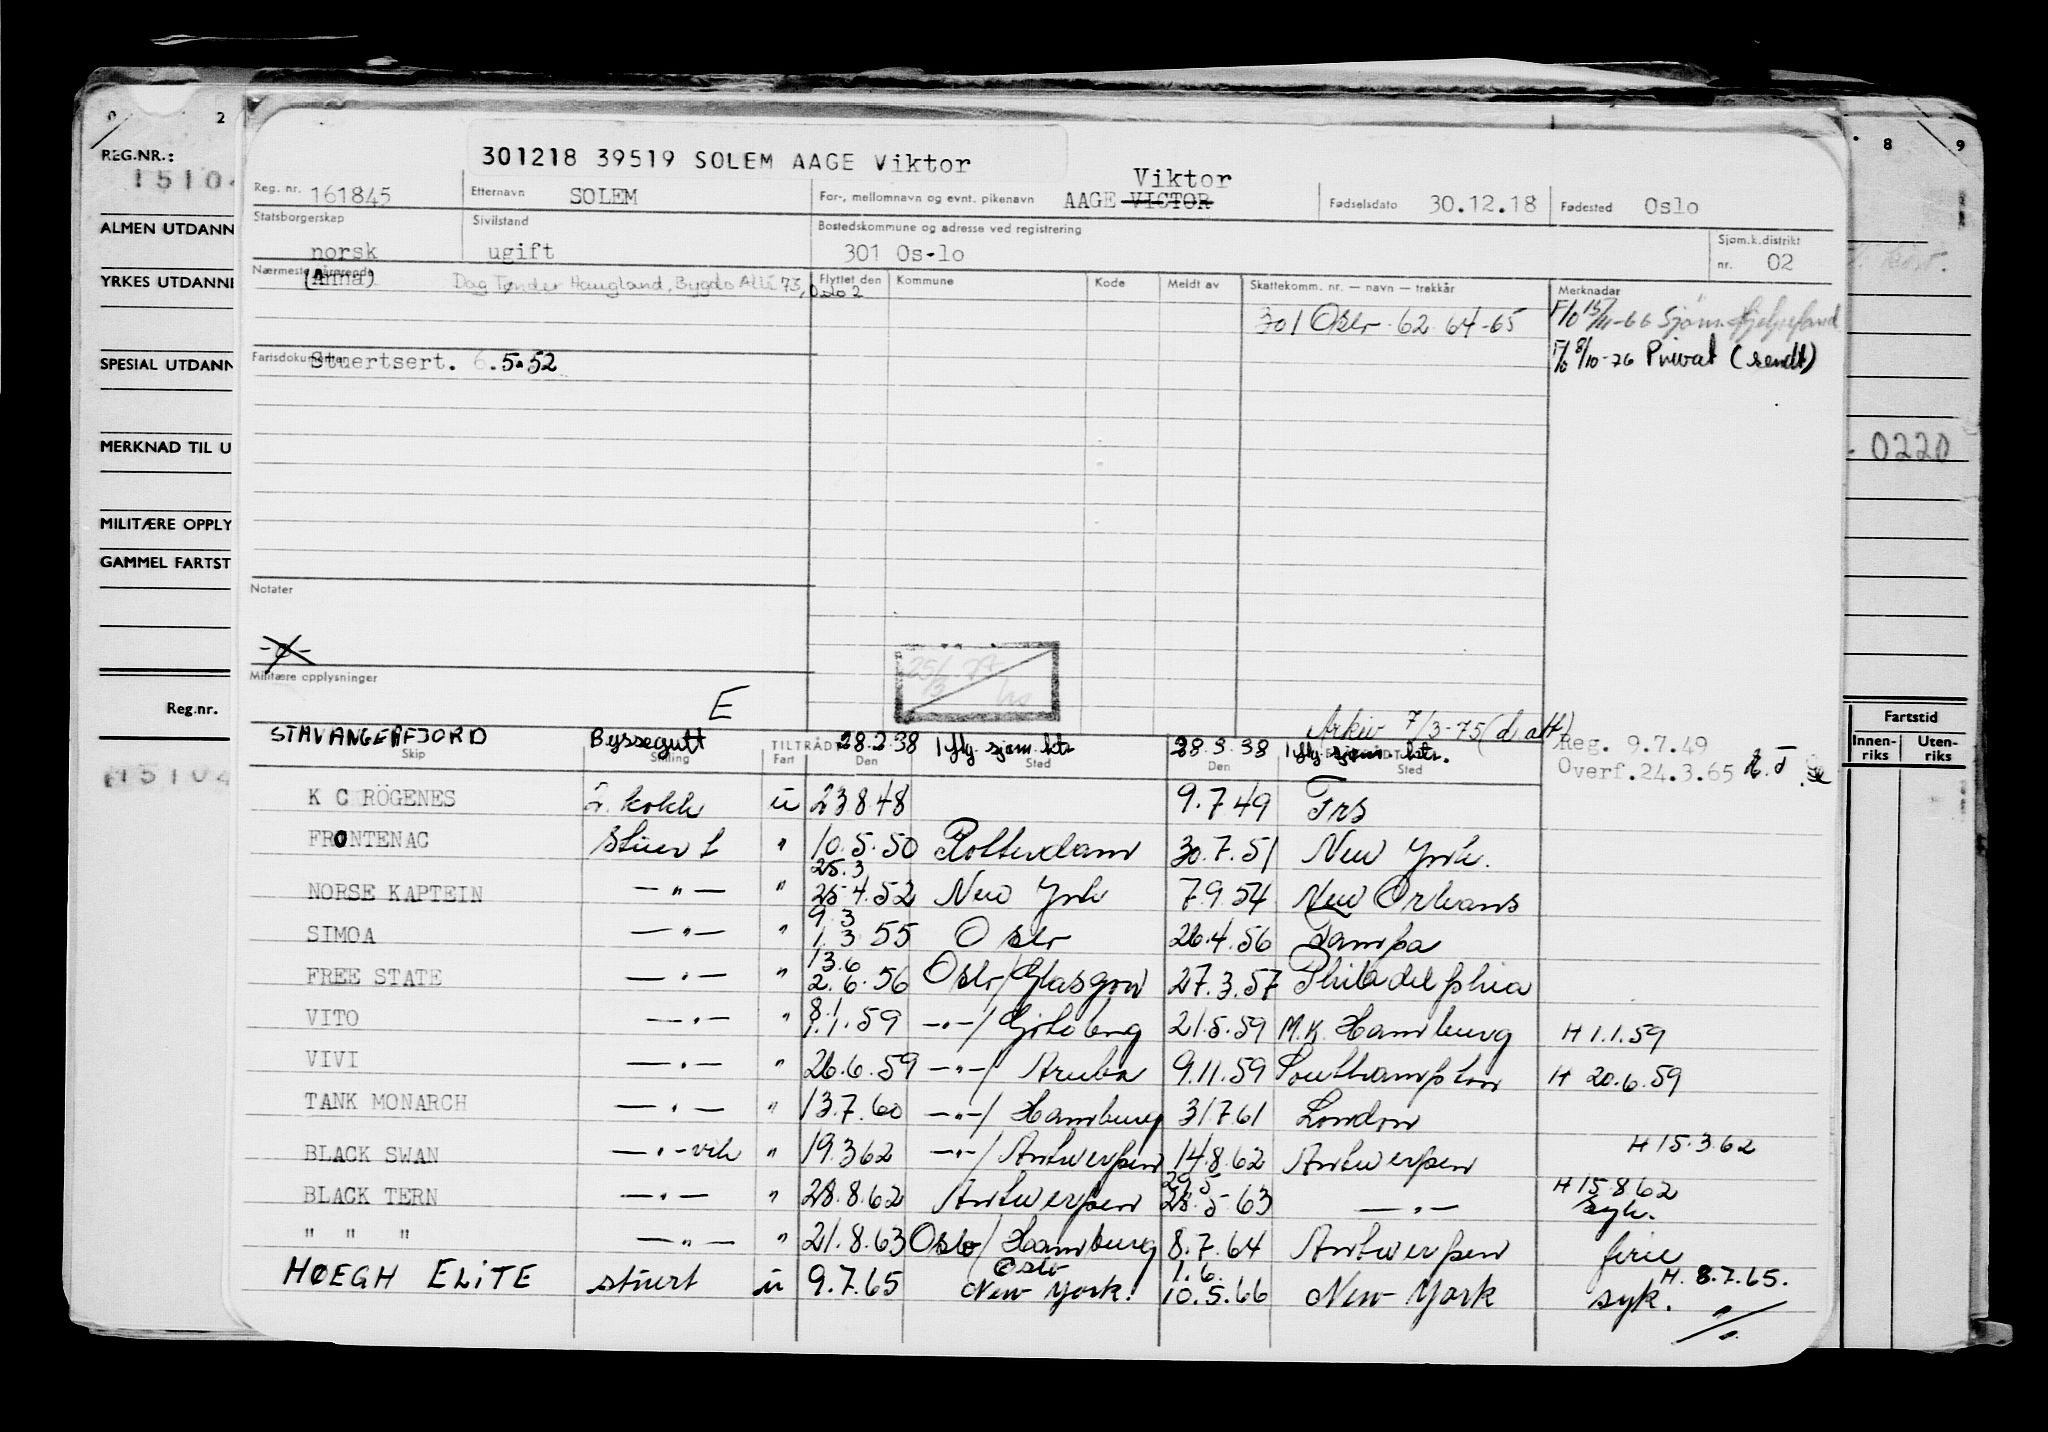 0 2 8 9
REG.NR.: 15104
ALMEN UTDANN
YRKES UTDANNE
SPESIAL UTDANN
MERKNAD TIL U
0220
MILITÆRE OPPLY
GAMMEL FARTST
Reg.nr.
15104
Fartstid
Innen-riks Uten-riks
301218 39519 SOLEM AAGE Viktor
Viktor
Reg. nr. 161845 Etternavn SOLEM For-, mellomnavn og evnt. pikenavn AAGE VICTOR Fødselsdato 30.12.18 Fødested Oslo
Statsborgerskap norsk Sivilstand ugift Bostedskommune og adresse ved registrering 301 Os-lo Sjøm.k.distrikt nr. 02
Nærmeste pårørende (Anna) Dag Tønder Haugland, Bygdø Allé 73, Oslo 2 Flyttet den Kommune Kode Meldt av Skattekomm. nr. — navn — trekkår Merknader
301 Oslo 62 64-65 F/0 15/11-66 Sjøm. Hjelpefond
Fartsdokumenter Stuertsert. 6.5.52 F/0 8/10-76 Privat (sendt)
Notater
Militære opplysninger
E
25/3
Arkiv 7/3-75 (d. att)
STAVANGERFJORD Byssegutt 28.2.38 1 flg. sjøm. btr. 28.3.38 1 flg. sjøm. btr. Reg. 9.7.49
Skip Stilling TILTRÅDT Fart Den Sted Den Sted Overf. 24.3.65
K C RÖGENES 2. kokk u 23 8 48 9.7.49 Trs
FRONTENAC Stuert " 10.5.50 Rotterdam 30.7.51 New York.
NORSE KAPTEIN —"— " 25.3 25 4.52 New York 7.9.54 New Orleans
SIMOA —"— " 9.3 1.3 55 Oslo 26.4.56 Tampa
FREE STATE —"— " 13.6 2.6.56 Oslo/Glasgow 27.3.57 Philadelphia
VITO —"— " 8.1 1.1.59 —"—/Göteborg 21.5.59 M.K. Hamburg H 1.1.59
VIVI —"— " 26.6.59 —"—/Aruba 9.11.59 Southampton H 20.6.59
TANK MONARCH —"— " 13.7.60 —"—/Hamburg 31 7 61 London
BLACK SWAN —"— vik " 19.3 62 —"—/Antwerpen 14.8.62 Antwerpen H 15.3.62
BLACK TERN —"— " 28.8.62 Antwerpen 29.5 28.5 63 —"— H 15.8.62 syk.
" " " —"— " 21.8.63 Oslo/Hamburg 8.7.64 Antwerpen ferie
HØEGH ELITE stuert u 9.7.65 Oslo New York. 1.6. 10.5.66 New York H. 8.7.65. syk.